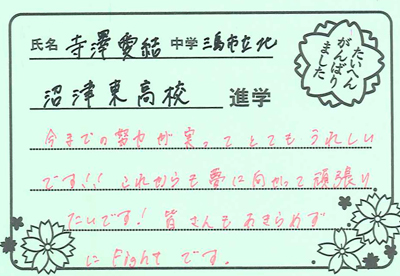 氏名 寺澤愛結 中学 三島市立北
たいへん
がんばり
ました
沼津東高校 進学
今までの努力が実ってとてもうれしい
です!! これからも夢に向かって頑張り
たいです! 皆さんもあきらめず
にFightです。